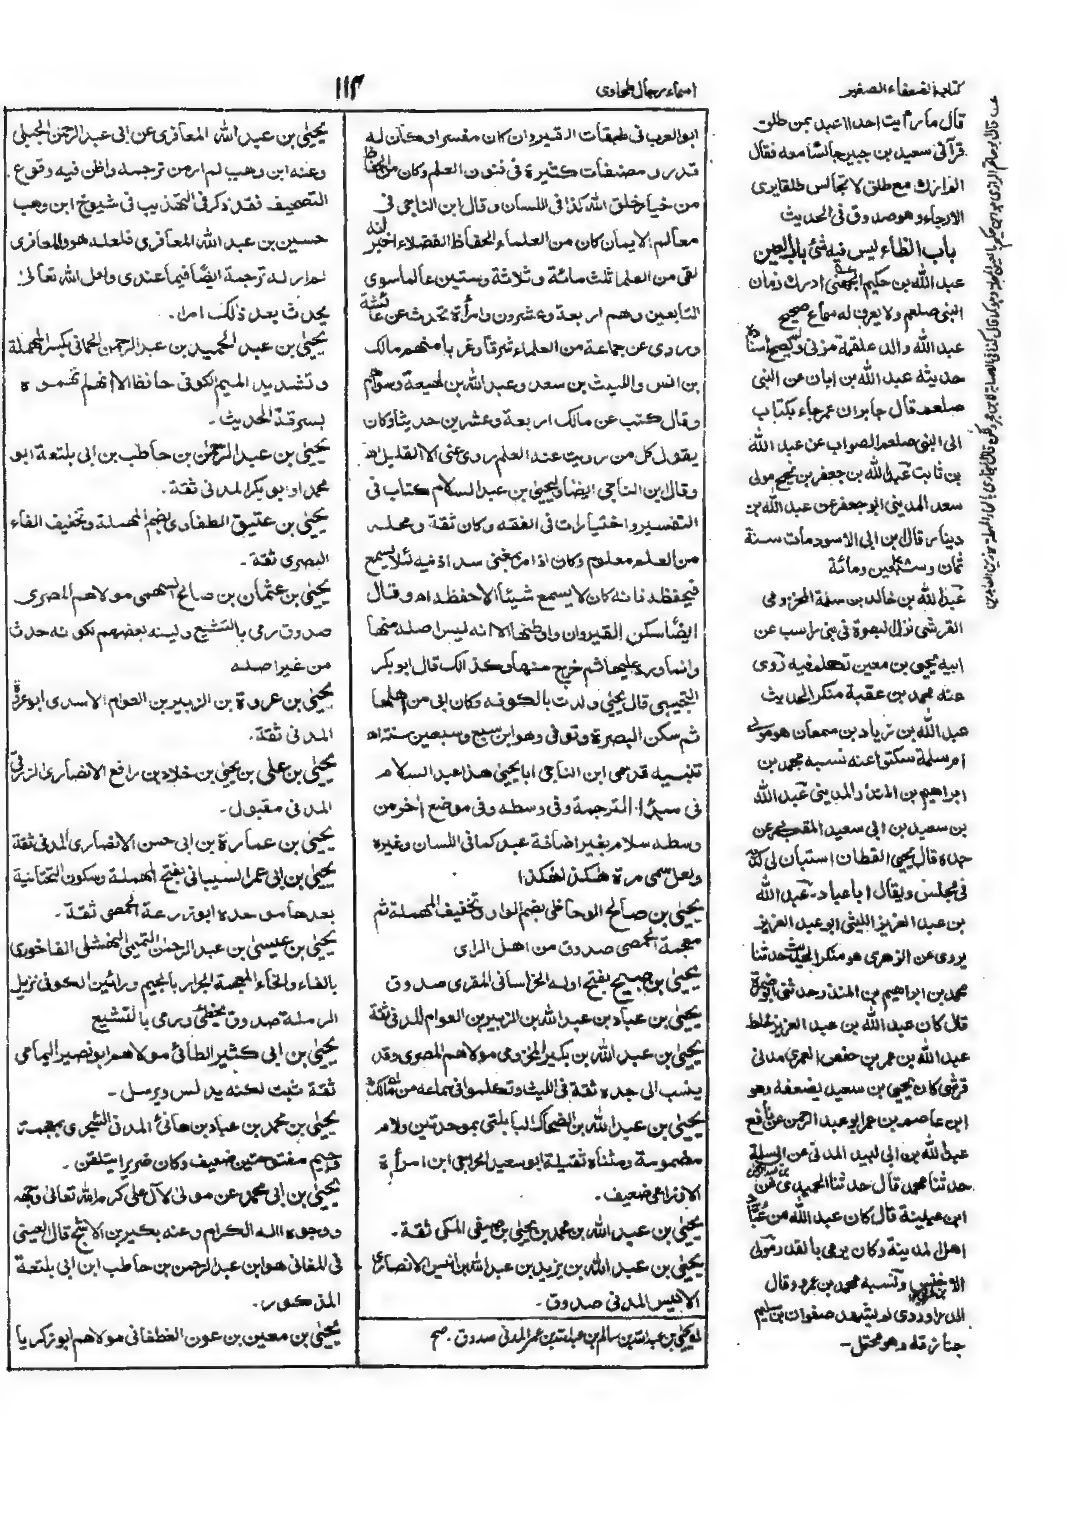 كتاب الضعفاء الصغير
اسماء رجال طحاوى
١١٣
قال ما رأيت احدا اعبد من طلق
قرآنى سعيد بن جبير جالسا معه فقال
الم ارك مع طلق لا تجالس طلقا يرى
الارجاء وهو صدوق فى الحديث
باب الظاء ليس فيه شئ باب العين
عبد الله بن حكيم الجهنى ادرك زمان
النبى صلعم ولا يعرف له سماع صحيح
عبد الله والد علقمة مزنى
حديثه عبد الله بن ابان عن النبى
صلعم قال جابر ان عمر جاء بكتاب
الى النبى صلعم الصواب عن عبد الله
بن ثابت عبد الله بن جعفر بن نجيح مولى
سعد المدينى ابو جعفر عن عبد الله بن
دينار قال بن ابى الاسود مات سنة
ثمان وسبعين ومائة
عبد الله بن خالد بن سلمة المخزومى
القرشى نزل البصرة فى بنى راسب عن
ابيه يحيى بن معين تكلم فيه روى
عنه محمد بن عقبة منكر الحديث
عبد الله بن زياد بن سمعان هو مولى
ام سلمة سكتوا عنه نسبه محمد بن
ابراهيم بن المنذر المدينى عبد الله
بن سعيد بن ابى سعيد المقبرى عن
جده قال يحيى القطان استبان لى كذبه
فى مجلس ويقال ابا عباد ـ عبد الله
بن عبد العزيز الليثى ابو عبد العزيز
يروى عن الزهرى هو منكر الحديث حدثنا
محمد بن ابراهيم بن المنذر حدثنى ابو ضمرة
قال كان عبد الله بن عبد العزيز خلط
عبد الله بن عمر بن حفص العمرى مدنى
قرشى كان يحيى بن سعيد يضعفه وهو
ابن عاصم بن عمر ابو عبد الرحمن عن نافع
عبد الله بن ابى لبيد المدنى عن ابى سلمة
حدثنا محمد قال حدثنا الحميدى عن
ابن عيينة قال كان عبد الله من عباد
اهل المدينة وكان يرمى بالقدر مولى
الاخنس ونسبه محمد بن عمرو قال
الدراوردى لم يشهد صفوان بن سليم
جنازته وهو محتمل ـ
ابو العرب فى طبقات القيروان كان مفسرا وكان له
قدر ومصنفات كثيرة فى فنون العلم وكان من الحفاظ
من خيار خلق الله كذا فى اللسان وقال ابن الناجى فى
معالم الايمان كان من العلماء الحفاظ الفضلاء اخبر انه
لقى من العلماء ثلث مائة وثلاثة وستين عالما سوى
التابعين وهم اربعة وعشرون وامرأة تحدث عن عائشة
وروى عن جماعة من العلماء شرقا وغربا منهم مالك
بن انس والليث بن سعد وعبد الله بن لهيعة وسواهم
وقال كتب عن مالك اربعة وعشرين حديثا وكان
يقول كل من رويت عنه العلم روى عنى الا القليل اه
وقال بن الناجى ايضا وليحيى بن عبد السلام كتاب فى
التفسير واختيارات فى الفقه وكان ثقة ومحله
من العلم معلوم وكان اذا مر بمغنى سد اذنيه لئلا يسمع
فيحفظه فانه كان لا يسمع شيئا الا حفظه اه وقال
ايضا سكن القيروان واوطنها الا انه ليس اصله منها
وانما ورد عليها ثم خرج منها وكذلك قال ابو بكر
التجيبى قال يحيى ولدت بالكوفة وكان ابى من اهلها
ثم سكن البصرة وتوفى وهو ابن سبع وسبعين سنة اه
تنبيه قد سمى ابن الناجى ابا يحيى هذا عبد السلام
فى مبدا الترجمة وفى وسطه وفى موضع اخر من
وسطه سلام بغير اضافة عبد كما فى اللسان وغيره
ولعل سمى مرة هكذا وهكذا
يحيى بن صالح الوحاظى بضم الواو وتخفيف المهملة ثم
معجمة الحمصى صدوق من اهل الراى
يحيى بن صبيح بفتح اوله الخراسانى المقرى صدوق
يحيى بن عباد بن عبد الله بن الزبير بن العوام المدنى ثقة
يحيى بن عبد الله بن بكير المخزومى مولاهم المصرى وقد
ينسب الى جده ثقة فى الليث وتكلموا فى سماعه من مالك
يحيى بن عبد الله بن الضحاك البابلتى بموحدتين ولام
مضمومة ومثناة ثقيلة ابو سعيد الحرانى ابن امرأة
الاوزاعى ضعيف ـ
يحيى بن عبد الله بن محمد بن يحيى بن صيفى المكى ثقة ـ
يحيى بن عبد الله بن يزيد بن عبد الله بن انيس الانصارى
الانيسى المدنى صدوق ـ
يحيى بن عبد الله بن سالم بن عبد الله بن عمر المدنى صدوق ـ صح
يحيى بن عبد الله المعافرى عن ابى عبد الرحمن الحبلى
وعنه ابن وهب لم ار من ترجمه واظن فيه وقوع
التصحيف فقد ذكر فى التهذيب فى شيوخ ابن وهب
حسين بن عبد الله المعافرى فلعله هو والمعافرى
لم ار له ترجمة ايضا فيما عندى ولعل الله تعالى
يحدث بعد ذلك امرا ـ
يحيى بن عبد الحميد بن عبد الرحمن الحمانى بكسر المهملة
وتشديد الميم الكوفى حافظ الا انهم اتهموه
بسرقة الحديث ـ
يحيى بن عبد الرحمن بن حاطب بن ابى بلتعة ابو
محمد او ابو بكر المدنى ثقة ـ
يحيى بن عتيق الطفاوى بضم المهملة وتخفيف الفاء
البصرى ثقة ـ
يحيى بن عثمان بن صالح السهمى مولاهم المصرى
صدوق رمى بالتشيع ولينه بعضهم لكونه حدث
من غير اصله
يحيى بن عروة بن الزبير بن العوام الاسدى ابو عروة
المدنى ثقة ـ
يحيى بن على بن يحيى بن خلاد بن رافع الانصارى الزرقى
المدنى مقبول ـ
يحيى بن عمارة بن ابى حسن الانصارى المدنى ثقة
يحيى بن ابى عمر السيبانى بفتح المهملة وسكون التحتانية
بعدها موحدة ابو زرعة الحمصى ثقة ـ
يحيى بن عيسى بن عبد الرحمن التميمى النهشلى الفاخورى
بالفاء والخاء المعجمة الجرار بالجيم ورائين الكوفى نزيل
الرملة صدوق يخطئ ورمى بالتشيع
يحيى بن ابى كثير الطائى مولاهم ابو نصير اليمامى
ثقة ثبت لكنه يدلس ويرسل ـ
يحيى بن محمد بن عباد بن هانئ المدنى الشجرى بمعجمة
فجيم مفتوحتين ضعيف وكان ضريرا يتلقن ـ
يحيى بن ابى محمد عن مولى لآل على كرم الله تعالى وجهه
ووجوه اله الكرام وعنه بكير بن الاشج قال العينى
فى المغانى هو ابن عبد الرحمن بن حاطب ابن ابى بلتعة
المذكور ـ
يحيى بن معين بن عون الغطفانى مولاهم ابو زكريا